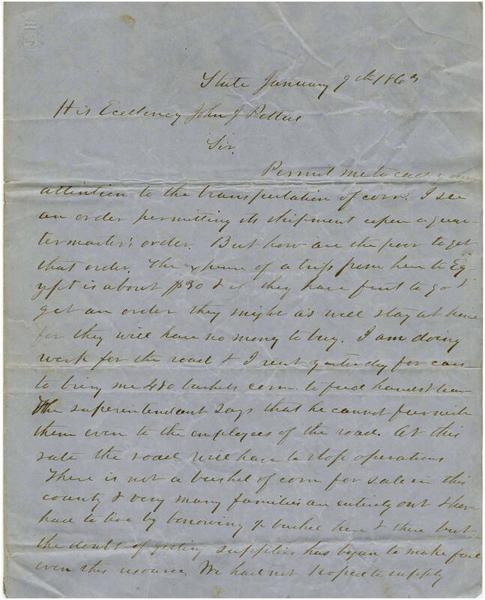 State January 9th 1863
His Excellency John J Pettus
Sir.
Permit me to call your
attention to the transportation of corn. I see
an order permitting its shipment upon a quar
termaster's order. But how are the poor to get
that order. The expense of a trip from here to Eg
ypt is about $30 & if they have first to go &
get an order they might as well stay at home
for they will have no money to buy. I am doing
work for the road & I sent yesterday for cars
to bring me 450 bushels corn to feed hands & team
The superintendant says that he cannot furnish
them even to the employees of the road. At this
rate the road will have to stop operations
There is not a bushel of corn for sale in this
county & very many families are entirely out & have
had to live by borrowing ½ bushel here & there but
the doubt of getting supplies has began to make fail
even this resource. We had not hoped to supply